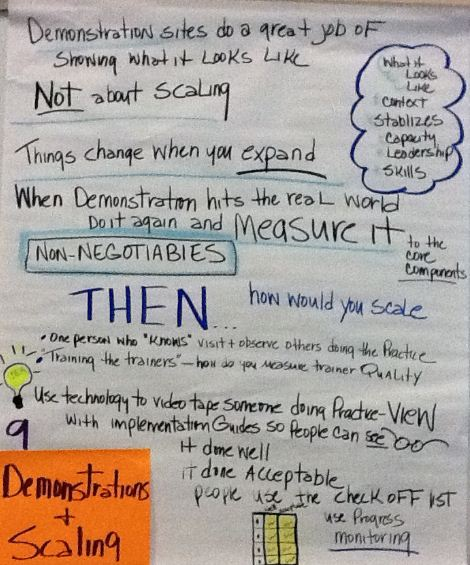 Demonstration sites do a great job of
showing what it looks like
Not about scaling
What it
Looks
Like
Context
Stablizes
Capacity
Leadership
Skills
Things change when you expand
When Demonstration hits the real world
Do it again and Measure it
to the
core
components
NON-NEGOTIABLES
THEN...
how would you scale
• One person who "knows" visit + observe others doing the Practice
• "Training the trainers" – how do you measure trainer Quality
Use technology to video tape someone doing Practice-View
with implementation Guides so people can see
it done well
it done Acceptable
people use the check off list
use Progress
monitoring
9
Demonstrations
+
Scaling